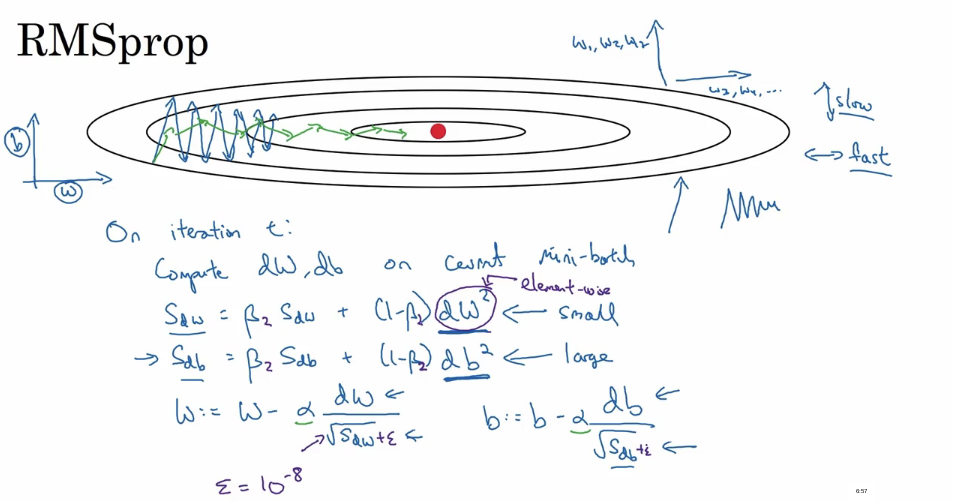 RMSprop
w₁, w₂, w₂
w₃, w₄, ...
slow
fast
b
w
On iteration t:
Compute dW, db on current mini-batch
element-wise
S_dw = β₂ S_dw + (1-β₂) dW² ← small
→ S_db = β₂ S_db + (1-β₂) db² ← large
W := W - α dW / √S_dw + ε ←
b := b - α db / √S_db + ε ←
ε = 10⁻⁸
6:57